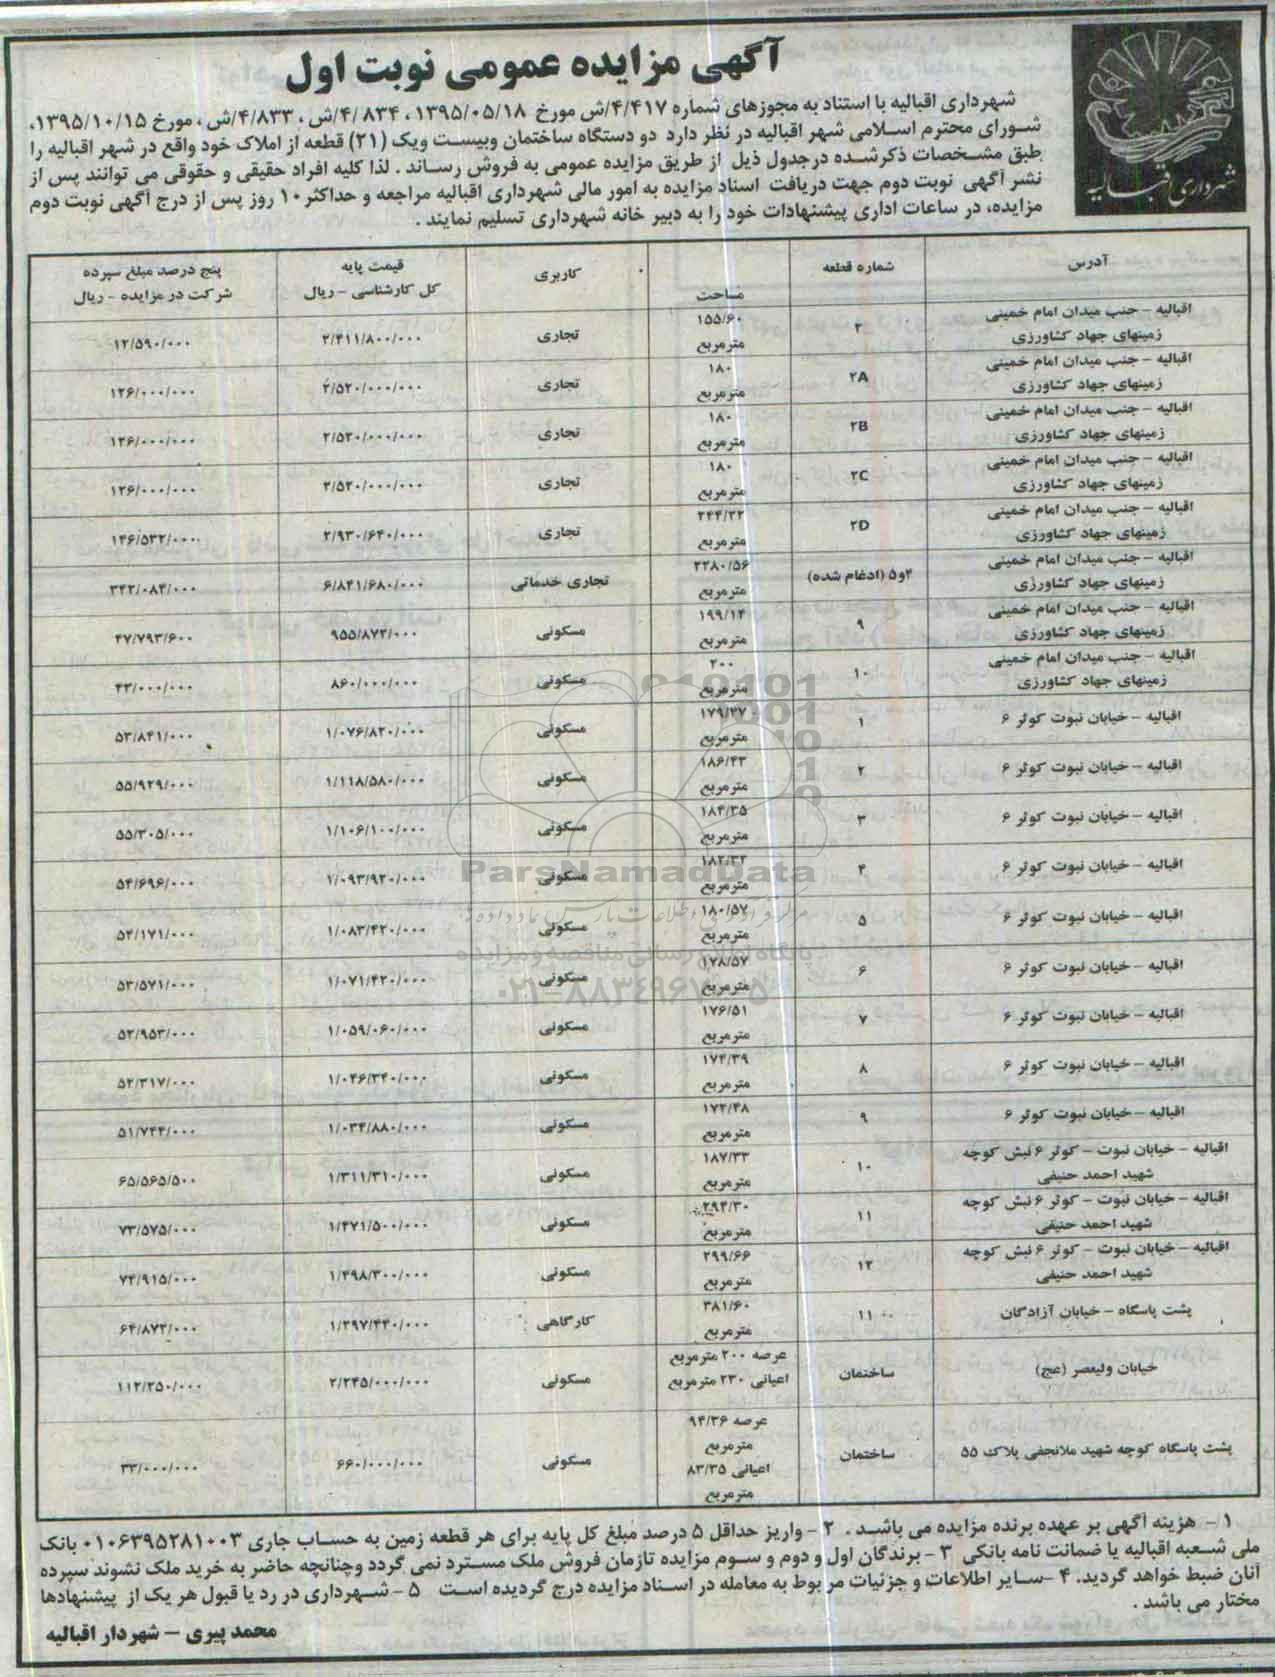 آگهی مزایده عمومی نوبت اول
شهرداری اقبالیه
شهرداری اقبالیه با استناد به مجوزهای شماره ۴/۴۱۷/ش مورخ ۱۳۹۵/۰۵/۱۸ ، ۴/۸۳۴/ش ، ۴/۸۳۳/ش ، مورخ ۱۳۹۵/۱۰/۱۵،
شورای محترم اسلامی شهر اقبالیه در نظر دارد دو دستگاه ساختمان وبیست ویک (۲۱) قطعه از املاک خود واقع در شهر اقبالیه را
طبق مشخصات ذکرشده درجدول ذیل از طریق مزایده عمومی به فروش رساند . لذا کلیه افراد حقیقی و حقوقی می توانند پس از
نشر آگهی نوبت دوم جهت دریافت اسناد مزایده به امور مالی شهرداری اقبالیه مراجعه و حداکثر ۱۰ روز پس از درج آگهی نوبت دوم
مزایده، در ساعات اداری پیشنهادات خود را به دبیر خانه شهرداری تسلیم نمایند .
آدرس شماره قطعه مساحت کاربری قیمت پایه کل کارشناسی - ریال پنج درصد مبلغ سپرده شرکت در مزایده - ریال
اقبالیه - جنب میدان امام خمینی زمینهای جهاد کشاورزی ۲ ۱۵۵/۶۰ مترمربع تجاری ۲/۴۱۱/۸۰۰/۰۰۰ ۱۲/۵۹۰/۰۰۰
اقبالیه - جنب میدان امام خمینی زمینهای جهاد کشاورزی ۲A ۱۸۰ مترمربع تجاری ۲/۵۲۰/۰۰۰/۰۰۰ ۱۲۶/۰۰۰/۰۰۰
اقبالیه - جنب میدان امام خمینی زمینهای جهاد کشاورزی ۲B ۱۸۰ مترمربع تجاری ۲/۵۲۰/۰۰۰/۰۰۰ ۱۲۶/۰۰۰/۰۰۰
اقبالیه - جنب میدان امام خمینی زمینهای جهاد کشاورزی ۲C ۱۸۰ مترمربع تجاری ۲/۵۲۰/۰۰۰/۰۰۰ ۱۲۶/۰۰۰/۰۰۰
اقبالیه - جنب میدان امام خمینی زمینهای جهاد کشاورزی ۲D ۲۴۴/۲۲ مترمربع تجاری ۲/۹۳۰/۶۴۰/۰۰۰ ۱۴۶/۵۳۲/۰۰۰
اقبالیه - جنب میدان امام خمینی زمینهای جهاد کشاورزی ۴و۵ (ادغام شده) ۲۲۸۰/۵۶ مترمربع تجاری خدماتی ۶/۸۴۱/۶۸۰/۰۰۰ ۳۴۲/۰۸۴/۰۰۰
اقبالیه - جنب میدان امام خمینی زمینهای جهاد کشاورزی ۹ ۱۹۹/۱۴ مترمربع مسکونی ۹۵۵/۸۷۲/۰۰۰ ۴۷/۷۹۳/۶۰۰
اقبالیه - جنب میدان امام خمینی زمینهای جهاد کشاورزی ۱۰ ۲۰۰ مترمربع مسکونی ۸۶۰/۰۰۰/۰۰۰ ۴۳/۰۰۰/۰۰۰
اقبالیه - خیابان نبوت کوثر ۶ ۱ ۱۷۹/۴۷ مترمربع مسکونی ۱/۰۷۶/۸۲۰/۰۰۰ ۵۳/۸۴۱/۰۰۰
اقبالیه - خیابان نبوت کوثر ۶ ۲ ۱۸۶/۴۳ مترمربع مسکونی ۱/۱۱۸/۵۸۰/۰۰۰ ۵۵/۹۲۹/۰۰۰
اقبالیه - خیابان نبوت کوثر ۶ ۳ ۱۸۴/۳۵ مترمربع مسکونی ۱/۱۰۶/۱۰۰/۰۰۰ ۵۵/۳۰۵/۰۰۰
اقبالیه - خیابان نبوت کوثر ۶ ۴ ۱۸۲/۳۲ مترمربع مسکونی ۱/۰۹۳/۹۲۰/۰۰۰ ۵۴/۶۹۶/۰۰۰
اقبالیه - خیابان نبوت کوثر ۶ ۵ ۱۸۰/۵۷ مترمربع مسکونی ۱/۰۸۳/۴۲۰/۰۰۰ ۵۴/۱۷۱/۰۰۰
اقبالیه - خیابان نبوت کوثر ۶ ۶ ۱۷۸/۵۷ مترمربع مسکونی ۱/۰۷۱/۴۲۰/۰۰۰ ۵۳/۵۷۱/۰۰۰
اقبالیه - خیابان نبوت کوثر ۶ ۷ ۱۷۶/۵۱ مترمربع مسکونی ۱/۰۵۹/۰۶۰/۰۰۰ ۵۲/۹۵۳/۰۰۰
اقبالیه - خیابان نبوت کوثر ۶ ۸ ۱۷۴/۳۹ مترمربع مسکونی ۱/۰۴۶/۳۴۰/۰۰۰ ۵۲/۳۱۷/۰۰۰
اقبالیه - خیابان نبوت کوثر ۶ ۹ ۱۷۲/۴۸ مترمربع مسکونی ۱/۰۳۴/۸۸۰/۰۰۰ ۵۱/۷۴۴/۰۰۰
اقبالیه - خیابان نبوت - کوثر ۶ نبش کوچه شهید احمد حنیفی ۱۰ ۱۸۷/۳۳ مترمربع مسکونی ۱/۳۱۱/۳۱۰/۰۰۰ ۶۵/۵۶۵/۵۰۰
اقبالیه - خیابان نبوت - کوثر ۶ نبش کوچه شهید احمد حنیفی ۱۱ ۲۹۴/۳۰ مترمربع مسکونی ۱/۴۷۱/۵۰۰/۰۰۰ ۷۳/۵۷۵/۰۰۰
اقبالیه - خیابان نبوت - کوثر ۶ نبش کوچه شهید احمد حنیفی ۱۲ ۲۹۹/۶۶ مترمربع مسکونی ۱/۴۹۸/۳۰۰/۰۰۰ ۷۴/۹۱۵/۰۰۰
پشت پاسگاه - خیابان آزادگان ۱۱۰۰ ۳۸۱/۶۰ مترمربع کارگاهی ۱/۲۹۷/۴۴۰/۰۰۰ ۶۴/۸۷۲/۰۰۰
خیابان ولیعصر (عج) ساختمان عرصه ۲۰۰ مترمربع اعیانی ۲۳۰ مترمربع مسکونی ۲/۲۴۵/۰۰۰/۰۰۰ ۱۱۲/۲۵۰/۰۰۰
پشت پاسگاه کوچه شهید ملانجفی پلاک ۵۵ ساختمان عرصه ۹۴/۳۶ مترمربع اعیانی ۸۳/۳۵ مترمربع مسکونی ۶۶۰/۰۰۰/۰۰۰ ۳۳/۰۰۰/۰۰۰
۱ - هزینه آگهی بر عهده برنده مزایده می باشد . ۲ - واریز حداقل ۵ درصد مبلغ کل پایه برای هر قطعه زمین به حساب جاری ۰۱۰۶۳۹۵۲۸۱۰۰۳ بانک
ملی شعبه اقبالیه یا ضمانت نامه بانکی ۳ - برندگان اول و دوم و سوم مزایده تازمان فروش ملک مسترد نمی گردد وچنانچه حاضر به خرید ملک نشوند سپرده
آنان ضبط خواهد گردید. ۴ -سایر اطلاعات و جزئیات مربوط به معامله در اسناد مزایده درج گردیده است ۵ - شهرداری در رد یا قبول هر یک از پیشنهادها
مختار می باشد .
محمد پیری - شهردار اقبالیه
ParsNamadData
پایگاه اطلاع رسانی مناقصه و مزایده